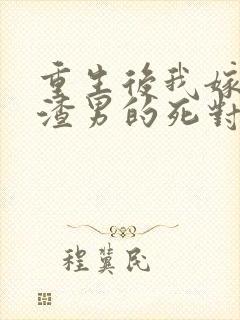 重生後我嫁
渣男的死對
程冀民